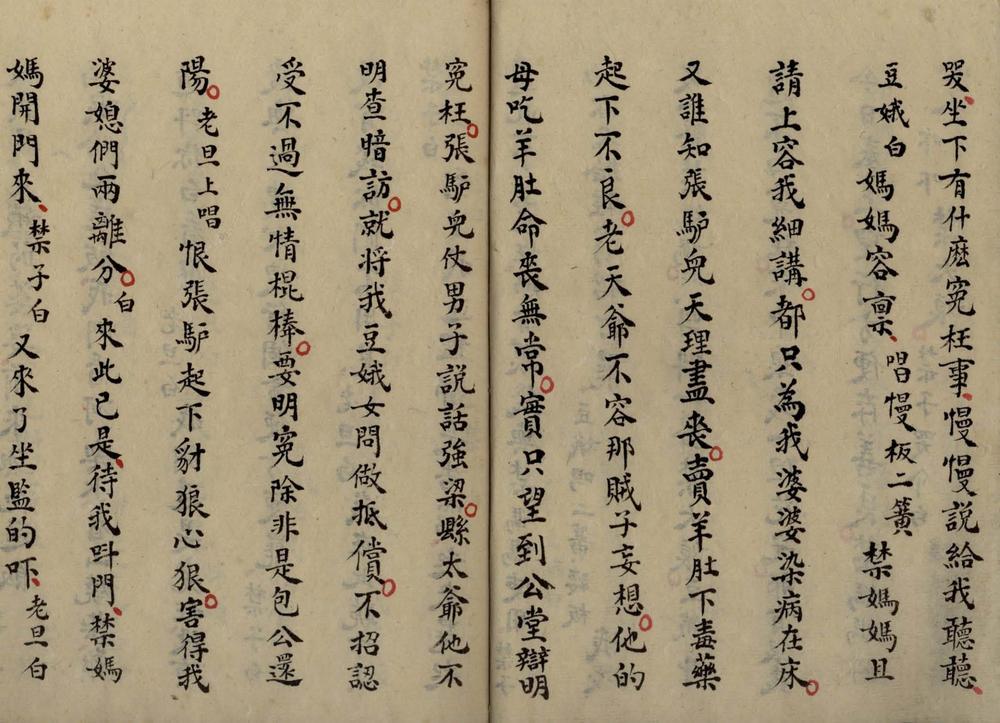 哭、坐下有什麽寃枉事、慢慢説給我聽聽、
豆娥白 媽媽容禀、唱慢板二簧 禁媽媽且
請上容我細講。都只為我婆婆染病在床。
又誰知張馿兒天理盡丧。賣羊肚下毒藥
起下不良。老天爺不容那賊子妄想。他的
母吃羊肚命丧無常。實只望到公堂辯明
寃枉。張馿兒仗男子説話強梁。縣太爺他不
明查暗訪。就将我豆娥女問做抵償。不招認
受不過無情棍棒。要明寃除非是包公還
陽。老旦上唱 恨張馿起下豺狼心狠。害得我
婆媳們兩離分。白 來此已是、待我呌門、禁媽
媽開門來、禁子白 又來了坐監的吓、老旦白